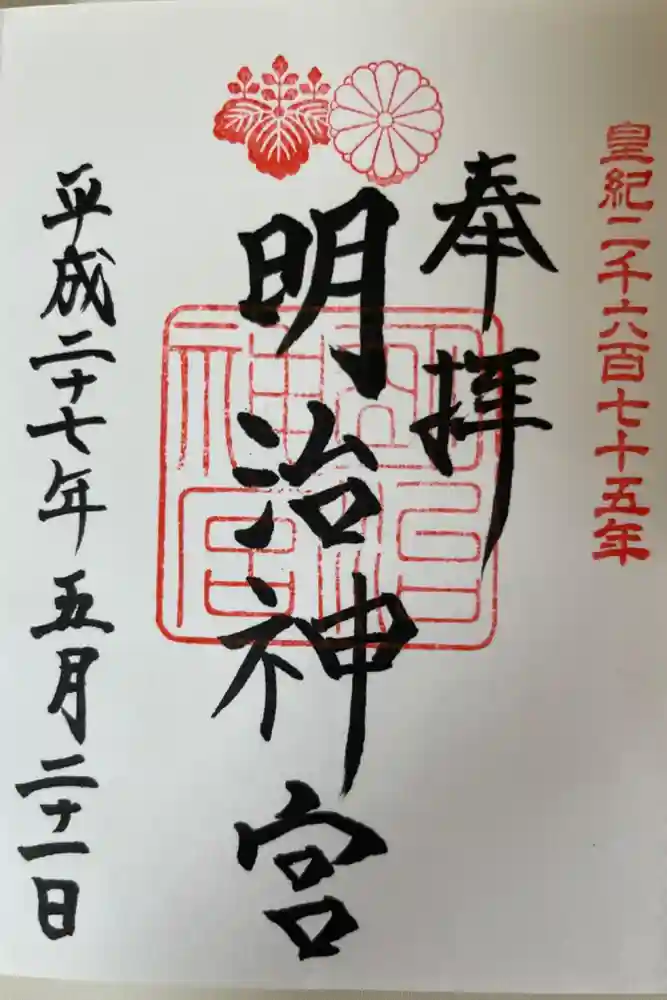 皇紀二千六百七十五年
奉拝
明治神宮
平成二十七年五月二十一日